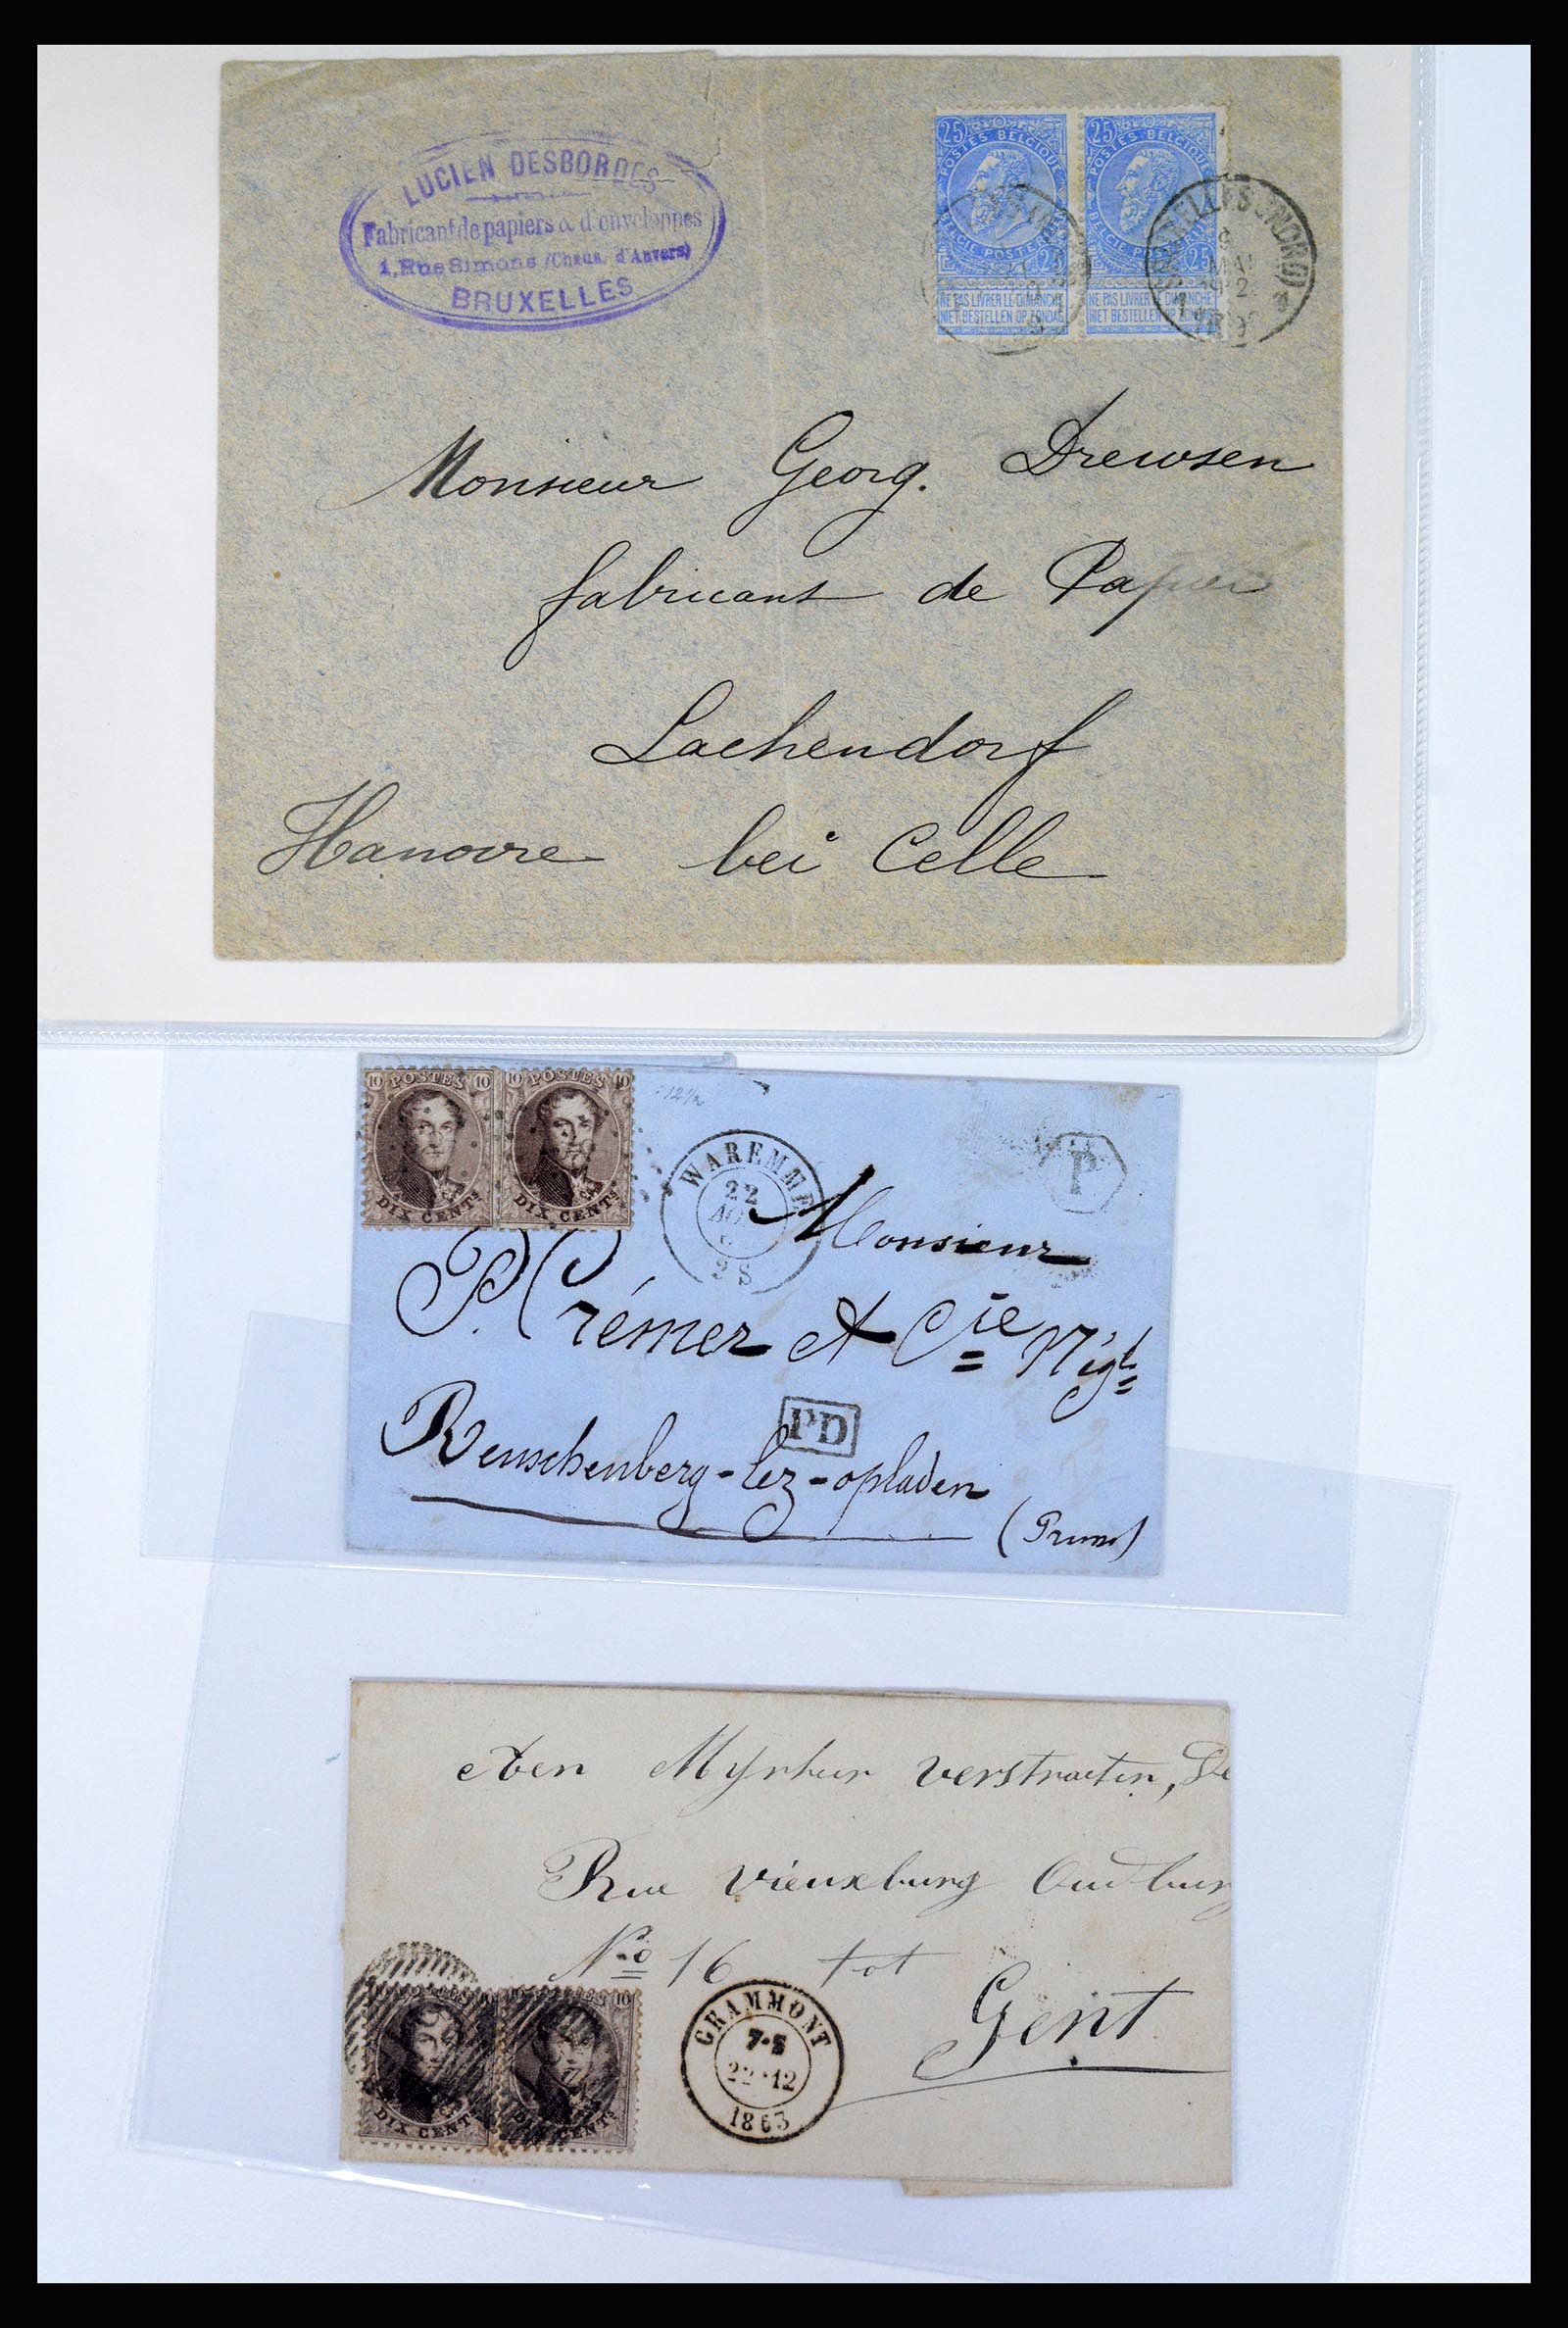 LUCIEN DESBORDES
Fabricant de papiers & d'enveloppes
1, Rue Simons (Chaus. d'Anvers)
BRUXELLES
25 25
POSTES BELGIQUE POSTES BELGIQUE
BELGIE POSTERIJEN BELGIE POSTERIJEN
25 25
NE PAS LIVRER LE DIMANCHE NE PAS LIVRER LE DIMANCHE
NIET BESTELLEN OP ZONDAG NIET BESTELLEN OP ZONDAG
MAI
Monsieur Georg. Drewsen
fabricant de Papier
Lachendorf
Hanovre bei Celle
10 POSTES 10 10 POSTES 10
DIX CENTs DIX CENTs
12½
WAREMME
22
2 S
P
Monsieur
P. Crémer et Cie Négts
PD
Reuschenberg-lez-opladen
Aen Mynheer verstraeten, De
Rue vieuxburg Oudburg
No 16 tot
Gent
10
DIX CENTs DIX CENTs
GRAMMONT
7-S
22·12
1863